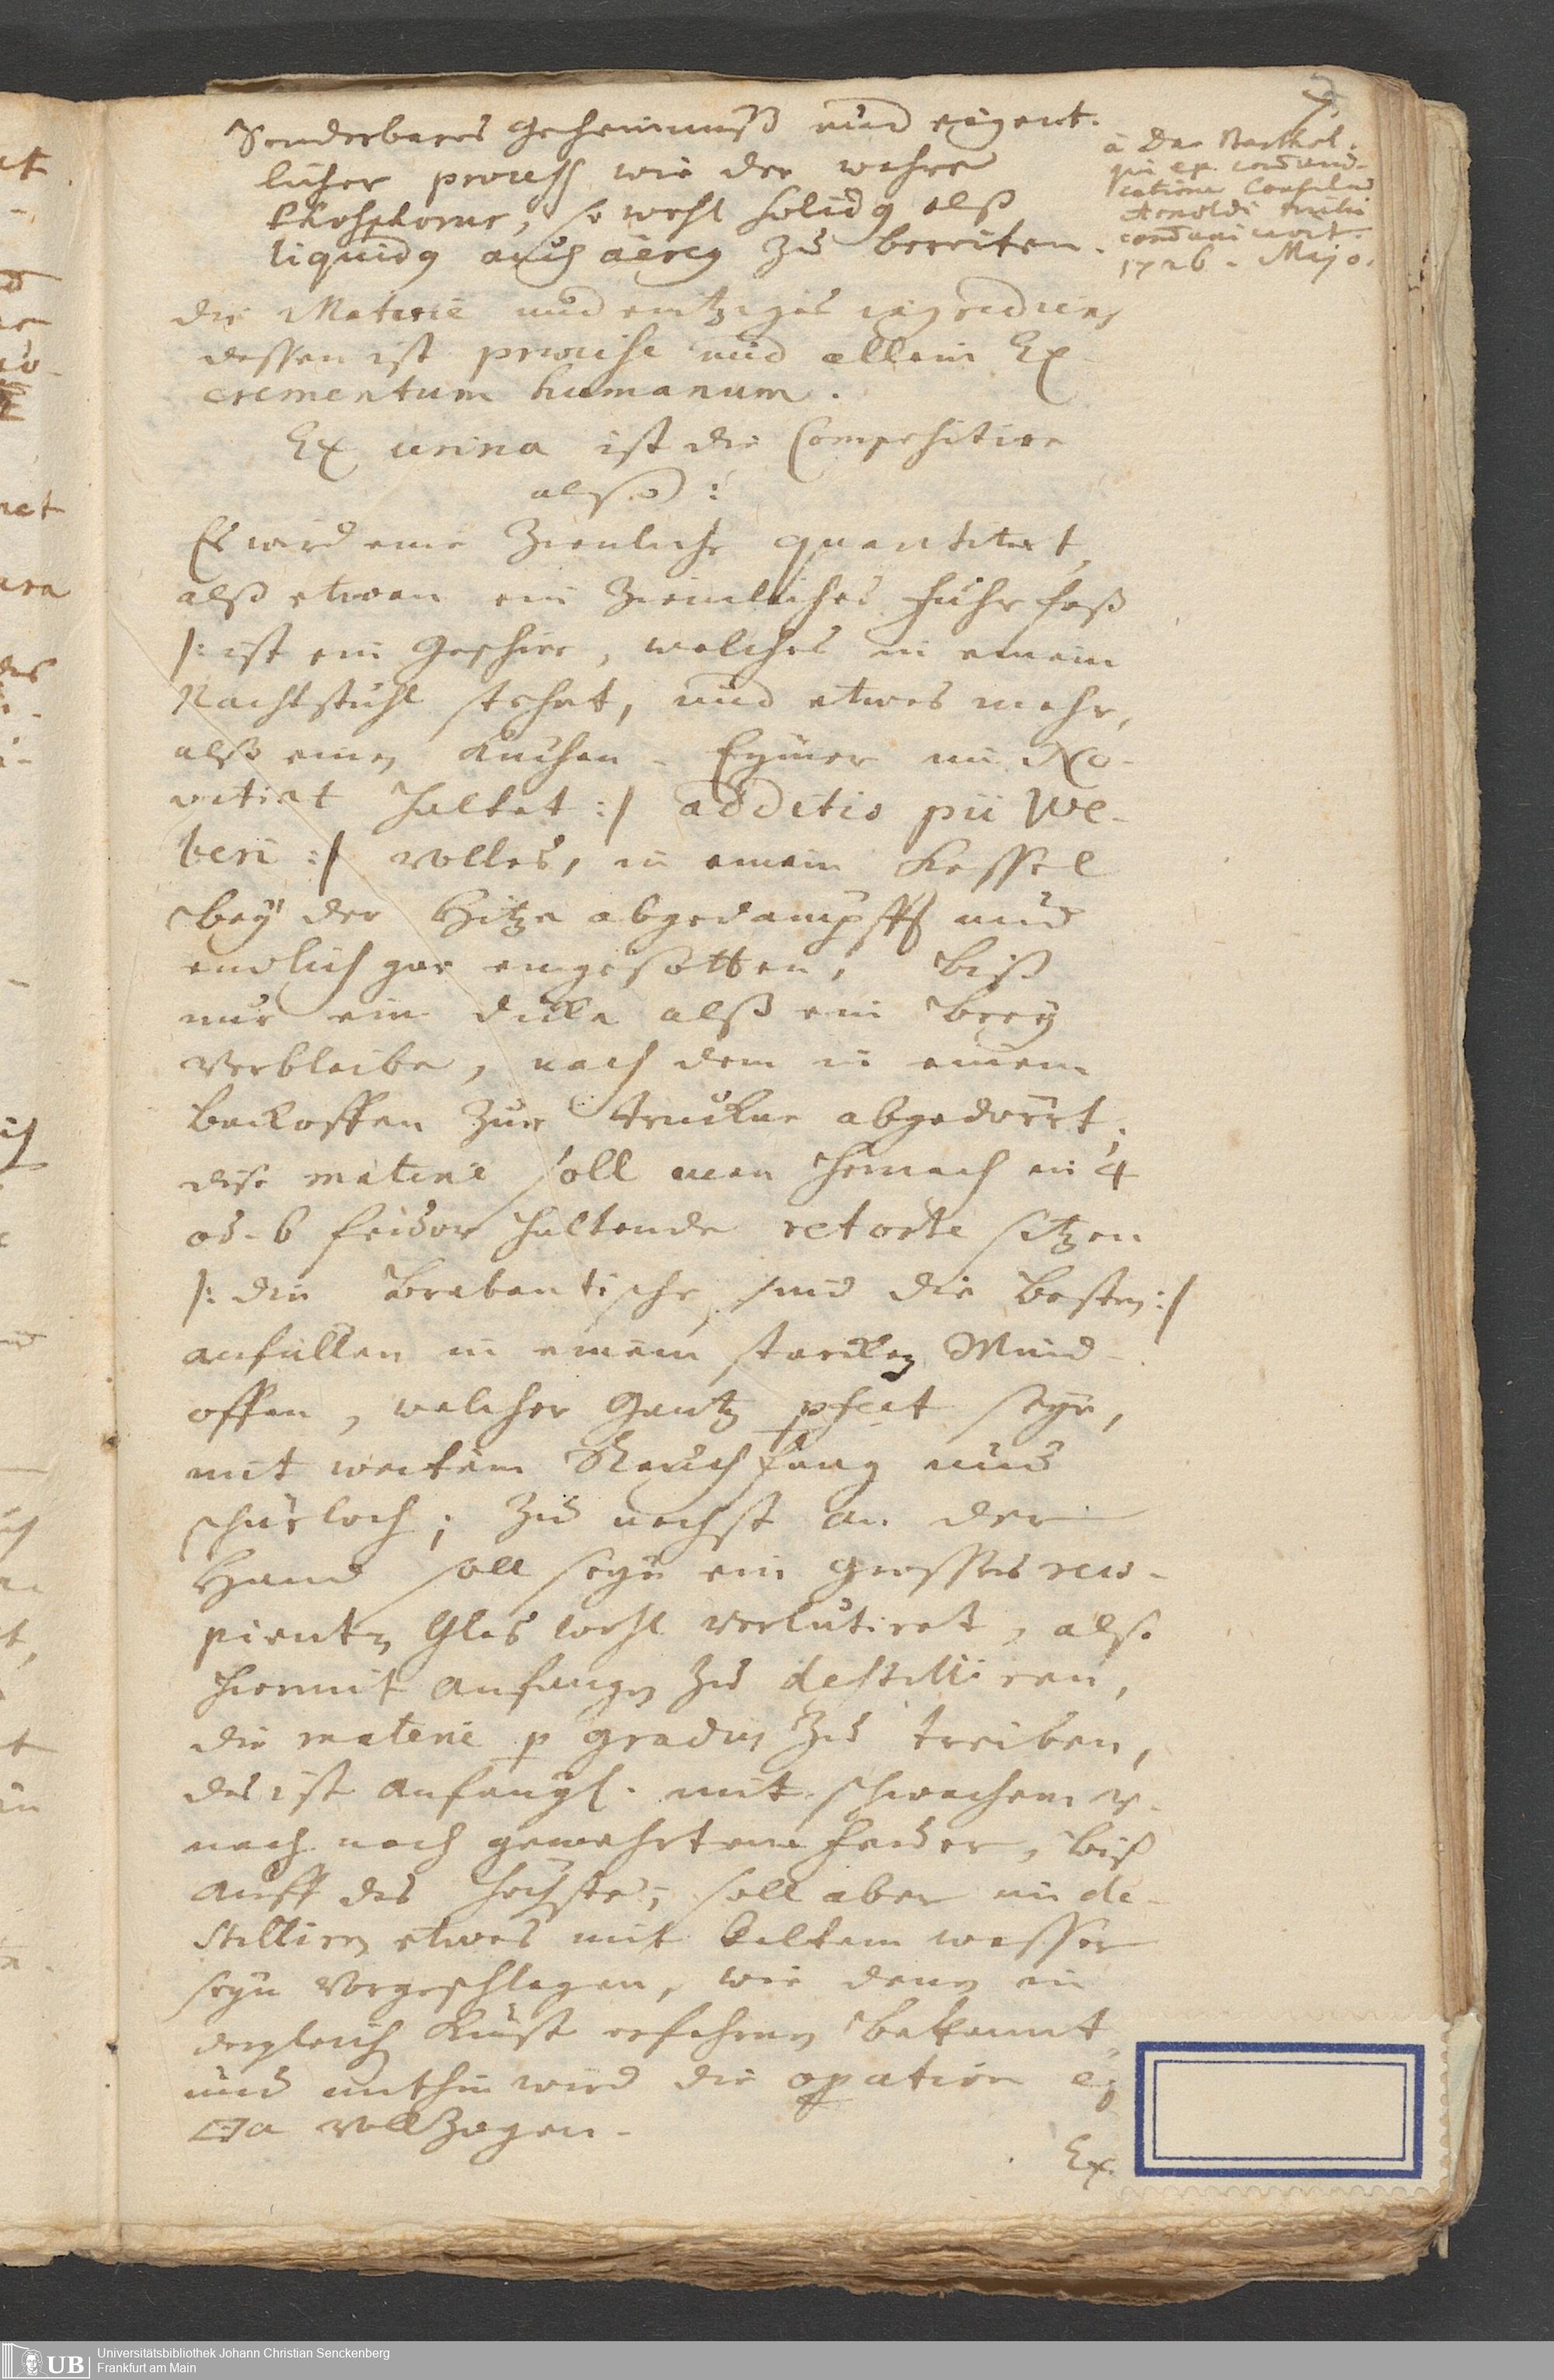 7.
Sonderbares Geheimnuß und eigent-
licher process wie der wahre
Phosphorus, so wohl solidq alß
liquidq auch aëreq zu bereiten.
à Dno Barthol.
qui ex com̄uni-
catione Consulis
Arnoldi mihi
com̄unicavit.
1726. Majo.
die Materie und eintziges ingrediens
dessen ist precise und allein Ex-
crementum humanum.
Ex urina ist die Composition
also:
Es wird eine Zimliche quantitet,
alß etwan ein Ziemliches
/: ist ein Geschirr, welches in einem
Nachtstuhl stehet, und etwas mehr,
alß einen Kuchen-Eymer in
haltet :/ additio pii We-
beri :/ volles, in einem Kessel
bey der Hitze abgedampfft und
endlich gar eingesotten, biß
nur ein dicke alß ein brey
verbleibe, nach dem in einem
backoffen zur truckne abgedörrt;
dise materie soll man hernach in 4
od. 6 haltende retorte setzen
/: die Brabantische sind die besten :/
anfüllen in einem starcken Wind-
offen, welcher Gantz pfect seye,
mit weitem Rauchfang und
schürloch; zu nechst an der
Hand soll seyn ein grosses reci-
pienten Glas wohl verlutiret, also
hiermit anfangen zu destilliren,
die materie p gradus zu treiben,
das ist anfangl. mit schwachem
nach nach gemehrtem feuer, biß
auff das höchste; soll aber im de-
stilliren etwas mit kaltem wasser
seyn vorgeschlagen, wie denen in
dergleich Kunst erfahrnen bekannt,
und mithin wird die opation ex
vollzogen.
Ex
UB
Universitätsbibliothek Johann Christian Senckenberg
Frankfurt am Main